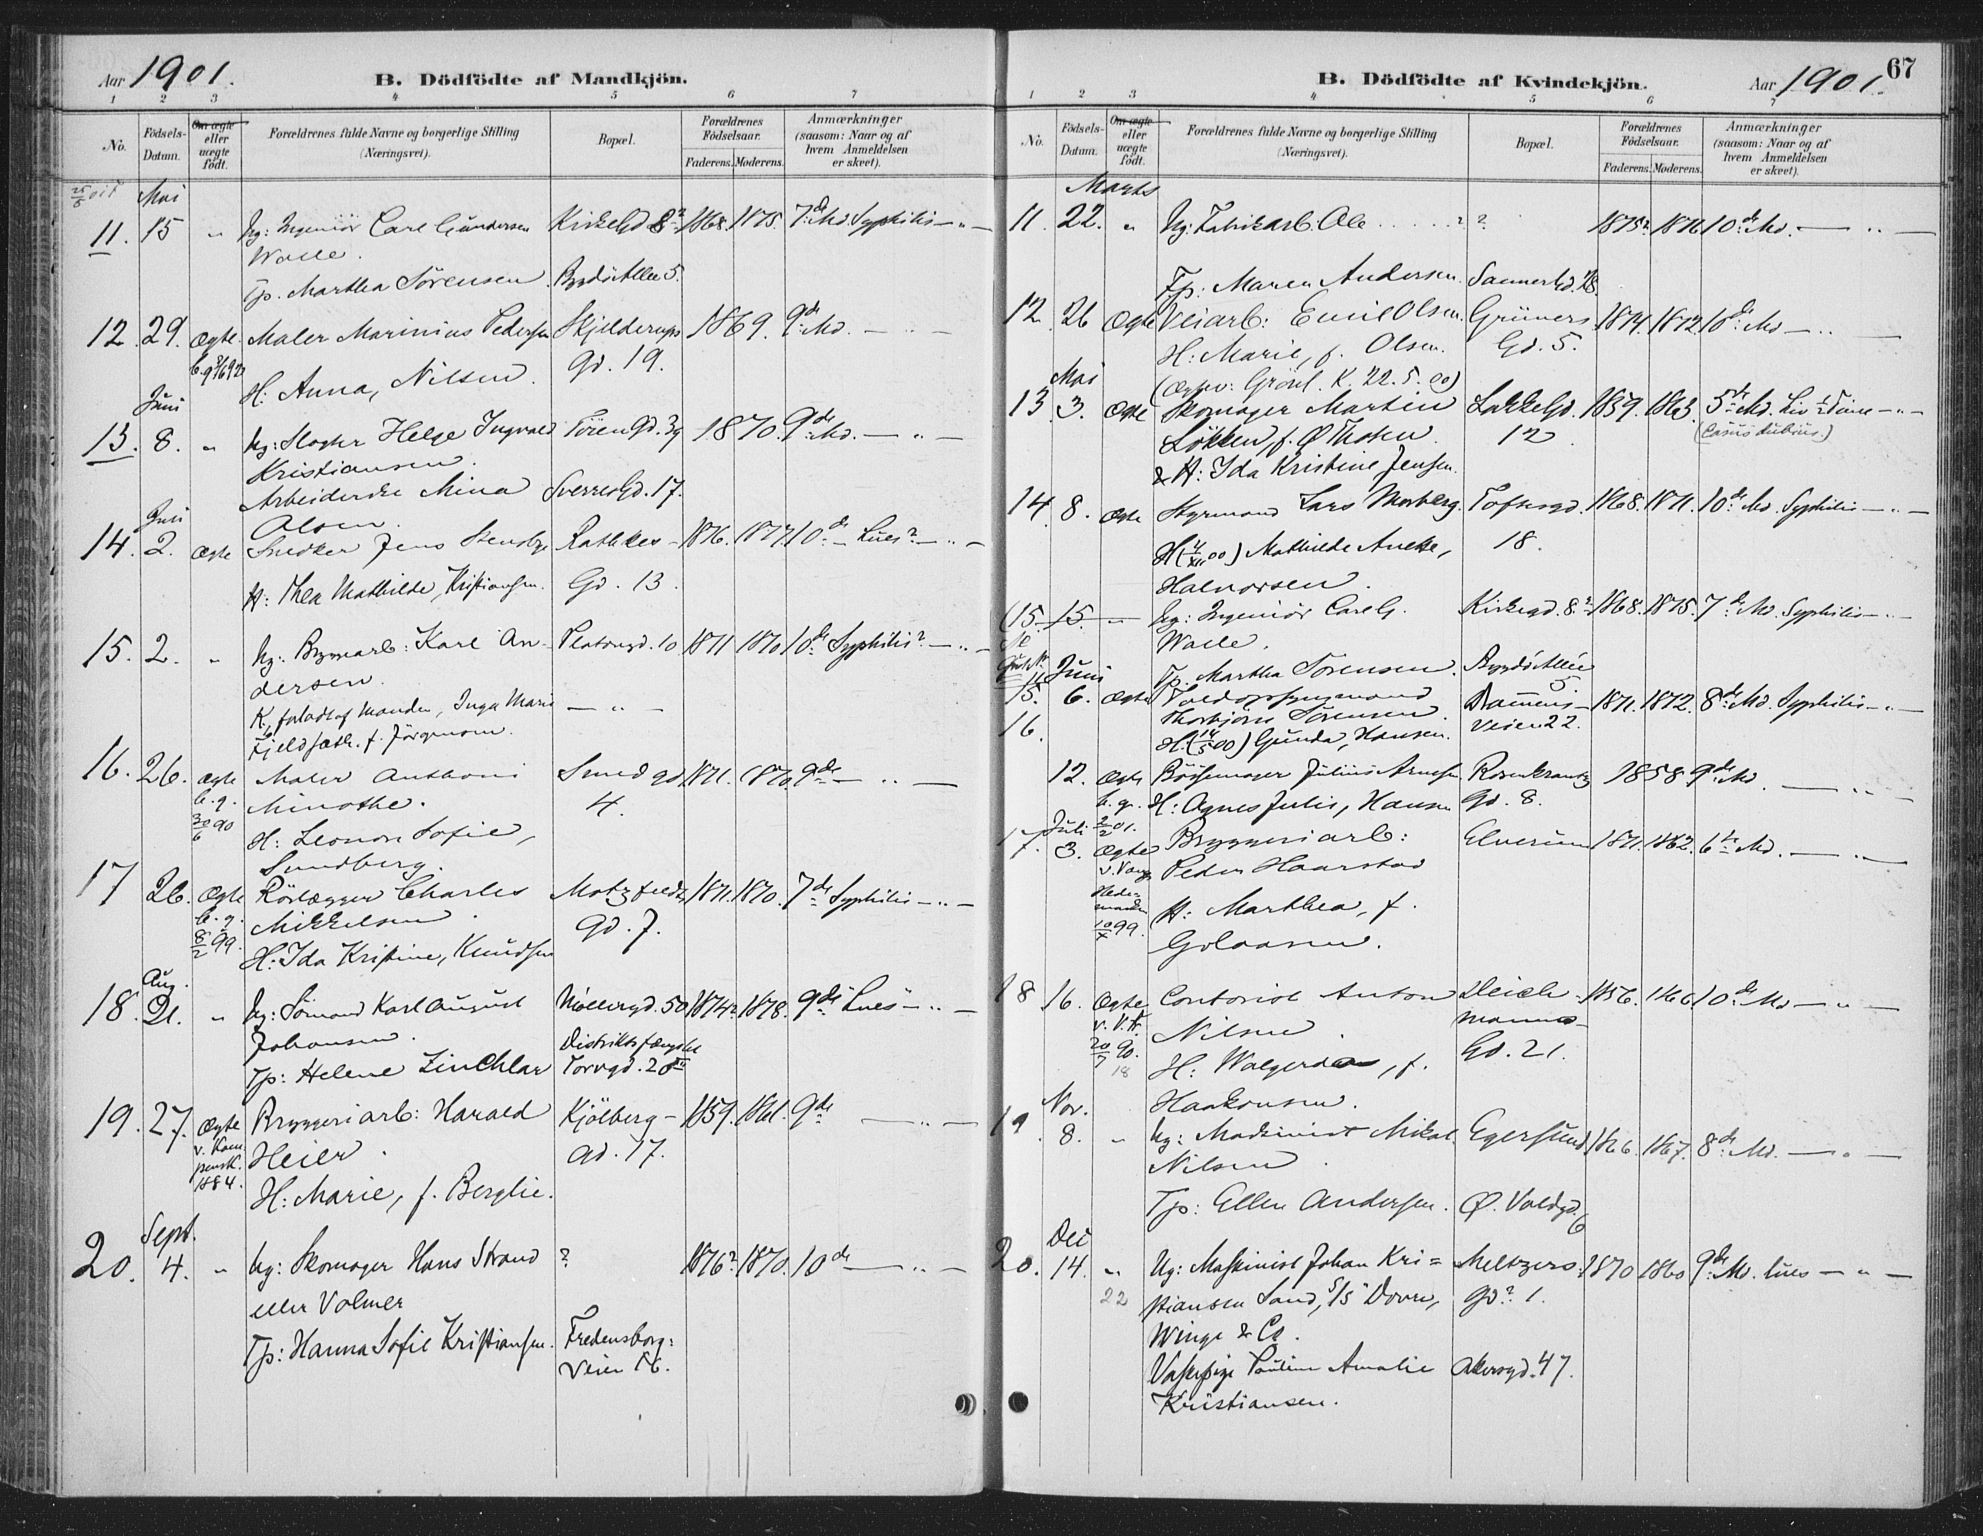 Aar 1901.
B. Dödfödte af Mandkjön.
1 2 3 4 5 6 7
No.
Födsels-Datum.
Om ægte eller uægte födt.
Forældrenes fulde Navne og borgerlige Stilling (Næringsvei).
Bopæl.
Forældrenes Födselsaar.
Faderens. Moderens.
Anmærkninger (saasom: Naar og af hvem Anmeldelsen er skeet).
Mai
11. 15 " Ug: Ingeniör Carl Gundersen Kirkegd 8? 1868. 1875. 7de Md. Syphilis — " —
Walle.
Tp. Martha Sörensen Bygdö Allee 5.
12. 29. Ægte Maler Marinius Pedersen Skjelderups 1869. 9de Md. — " —
H: Anna, Nilsen. Gd. 19.
Juni
13. 8. " Ug: Slagter Helge Ingvald Töien Gd. 39 1870. 9de Md. — " —
Kristiansen.
Arbeiderske Mina Sverres Gd. 17.
Olsen.
Juli
14. 2. Ægte Snedker Jens Stensby Rathkes- 1876. 1877. 10de — Lues? — " —
H: Thea Mathilde, Kristiansen. Gd. 13.
15. 2. " Ug: Bryggarb: Karl An- Platousgd. 10 1871 1870 10de Syphilis? — " —
dersen.
K., forladt af Manden, Inga Marie — " —
Fjeldsæth. f. Jörgensen.
16. 26. Ægte Maler Anthoni Smedgd 1871. 1870. 9de — " —
b. g. Minothe. 4.
30/6 90 H: Leonore Sofie,
Sundberg.
17 26. Ægte Rörlægger Charles Motzfeldts 1871. 1870. 7de Syphilis — " —
b. g. Mikkelsen. Gd. 7.
8/2 99. H: Ida Kristine, Knudsen
Aug.
18. 21. " Ug: Sömand Karl August Möllergd. 50 1874? 1878. 9de Lues — " —
Johansen. Distriktsfængslet
Tp: Helene Zinchlar Torvgd. 20 III
19. 27. Ægte Bryggeriarb: Harald Kjölberg- 1859. 1861. 9de — " —
v. Kom Heier. Gd. 77.
pensk. 1884. H: Marie, f. Berglie.
Sept.
20. 4. " Ug: Skomager Hans Strand ? 1876? 1870. 10de — " —
eller Volmer
Tp: Hanna Sofie Kristiansen. Fredensborg:
Veien 56.
B. Dödfödte af Kvindekjön.
Aar 1901.
67
1 2 3 4 5 6 7
No.
Födsels-Datum.
Om ægte eller uægte födt.
Forældrenes fulde Navne og borgerlige Stilling (Næringsvei).
Bopæl.
Forældrenes Födselsaar.
Faderens. Moderens.
Anmærkninger (saasom: Naar og af hvem Anmeldelsen er skeet).
Marts
11. 22. " Ug: Fabrikarb. Ole . . . . . ? ? 1875? 1876 10de Md. — " —
Tp: Maren Andersen. Sannergd. 18.
12. 26 Ægte Veiarb: Emil Olsen. Grüners 1874. 1872. 10de Md — " —
H: Marie, f. Olsen. Gd. 5.
(Ægtev: Grönl. K. 22. 5. 00)
Mai
13 3. Ægte Skomager Martin Lakkegd. 1859. 1863. 5te Md. Liv ½ Time — " —
Lökken, f. Ø Thoten. 12. (Casus dubius.)
& H: Ida Kristine Jensen.
14. 8. Ægte Styrmand Lars Morberg. Toftesgd. 1868. 1871. 10de Md. Syphilis — " —
H( 00) Mathilde Anette, 18.
Halvorsen.
(15. 15. — " Ug: Ingeniör Carl G. Kirkegd. 8? 1868. 1875. 7de Md. Syphilis — " —
Walle.
Tp. Martha Sörensen. Bygdö Allée 5.
Juni
15. 6. Ægte Toldopsynsmand Dammens- 1871. 1872. 8de Md. Syphilis — " —
Thorbjörn Sörensen. Veien 22.
H: (14/5 00) Gunda, Hansen.
16. 12. Ægte Bössemager Julius Arnesen Rosenkrantz 1858. 9de Md. — " —
b. g. H: Agnes Julie, Hansen Gd. 8.
2/2 01.
Juli
17. 3. Ægte Bryggeriarb: Elverum 1871. 1862. 6te Md. — " —
v. Vang Peder Haarstad
Hede-marken H: Marthea, f.
10/X 99. Golaasen.
18 16. Ægte Contorist Anton Deich- 1856. 1866. 10de Md — " —
v. V. A. Nilsen. manns-
20/7 90. H: Walgerda, f. Gd. 21.
18 Haakonsen.
Nov.
19. 8. " Ug: Maskinist Mikal Egersund. 1866. 1867. 8de Md. — " —
Nilsen.
Tp: Ellen Andersen. Ø. Voldgd. 6
Dec
20. 14. " Ug: Maskinist Johan Kri= Meltzers: 1870 1860 9de Md. Lues — " —
22 stiansen Sand, S/S "Dovre, Gd? 1.
Winge & Co.
Vaskepige Pauline Amalie Akersgd. 47.
Kristiansen.